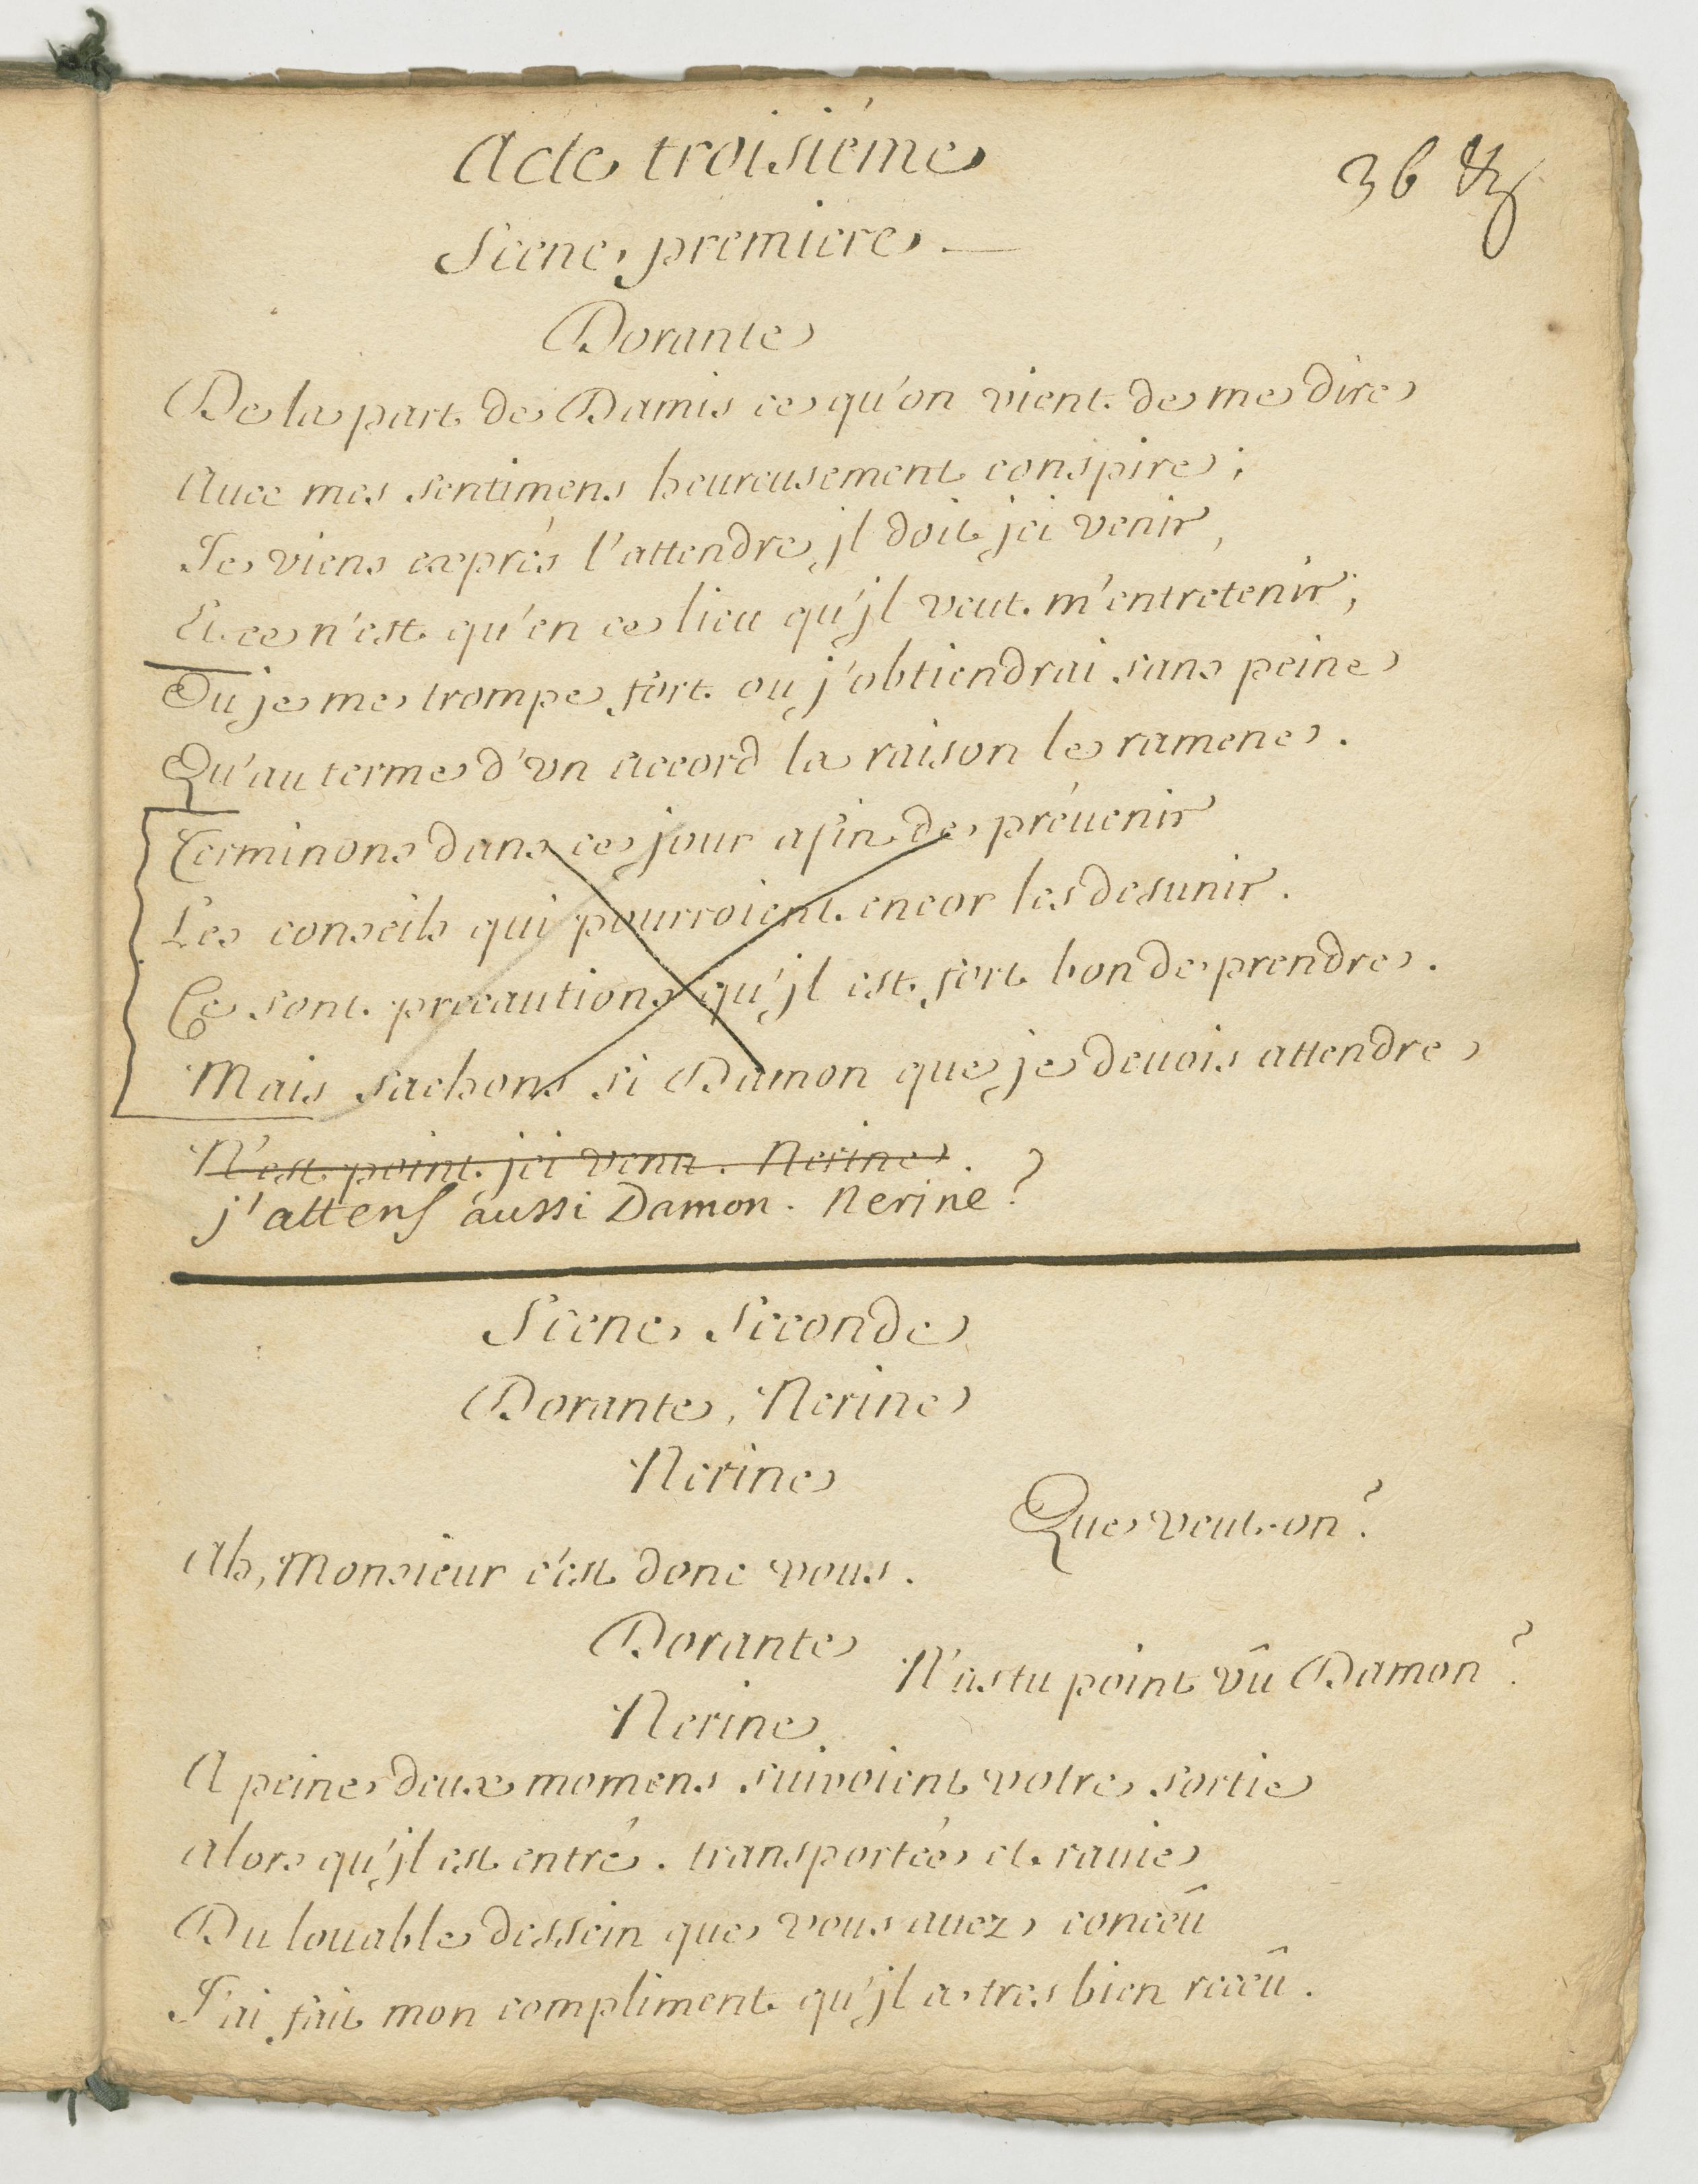 Acte troisiéme
36
Scene premiere
Dorante
De la part de Damis ce qu'on vient de me dire
Auec mes sentimens heureusement conspire;
Je viens exprés l'attendre, jl doit jci venir,
Et ce n'est qu'en ce lieu qu'jl veut m'entretenir;
Ou je me trompe fort ou j'obtiendrai sans peine
Qu'au terme d'vn accord la raison le ramene.
Terminons dans ce jour afin de préuenir
Les conseils qui pourroient encor les desunir.
Ce sont precautions qu'jl est fort bon de prendre.
Mais sachons si Damon que je deuois attendre
N'est point jci venu. Nerine. ?
j'attens aussi Damon. Nerine?
Scene Seconde
Dorante, Nerine
Nerine
Que veut-on?
Ah, Monsieur c'est donc vous.
Dorante
N'as tu point vû Damon?
Nerine
A peine deux momens suivoient votre sortie
alors qu'jl est entré. transportée et rauie
Du louable dessein que vous auez conceû
J'ai fait mon compliment qu'jl a tres bien receû.